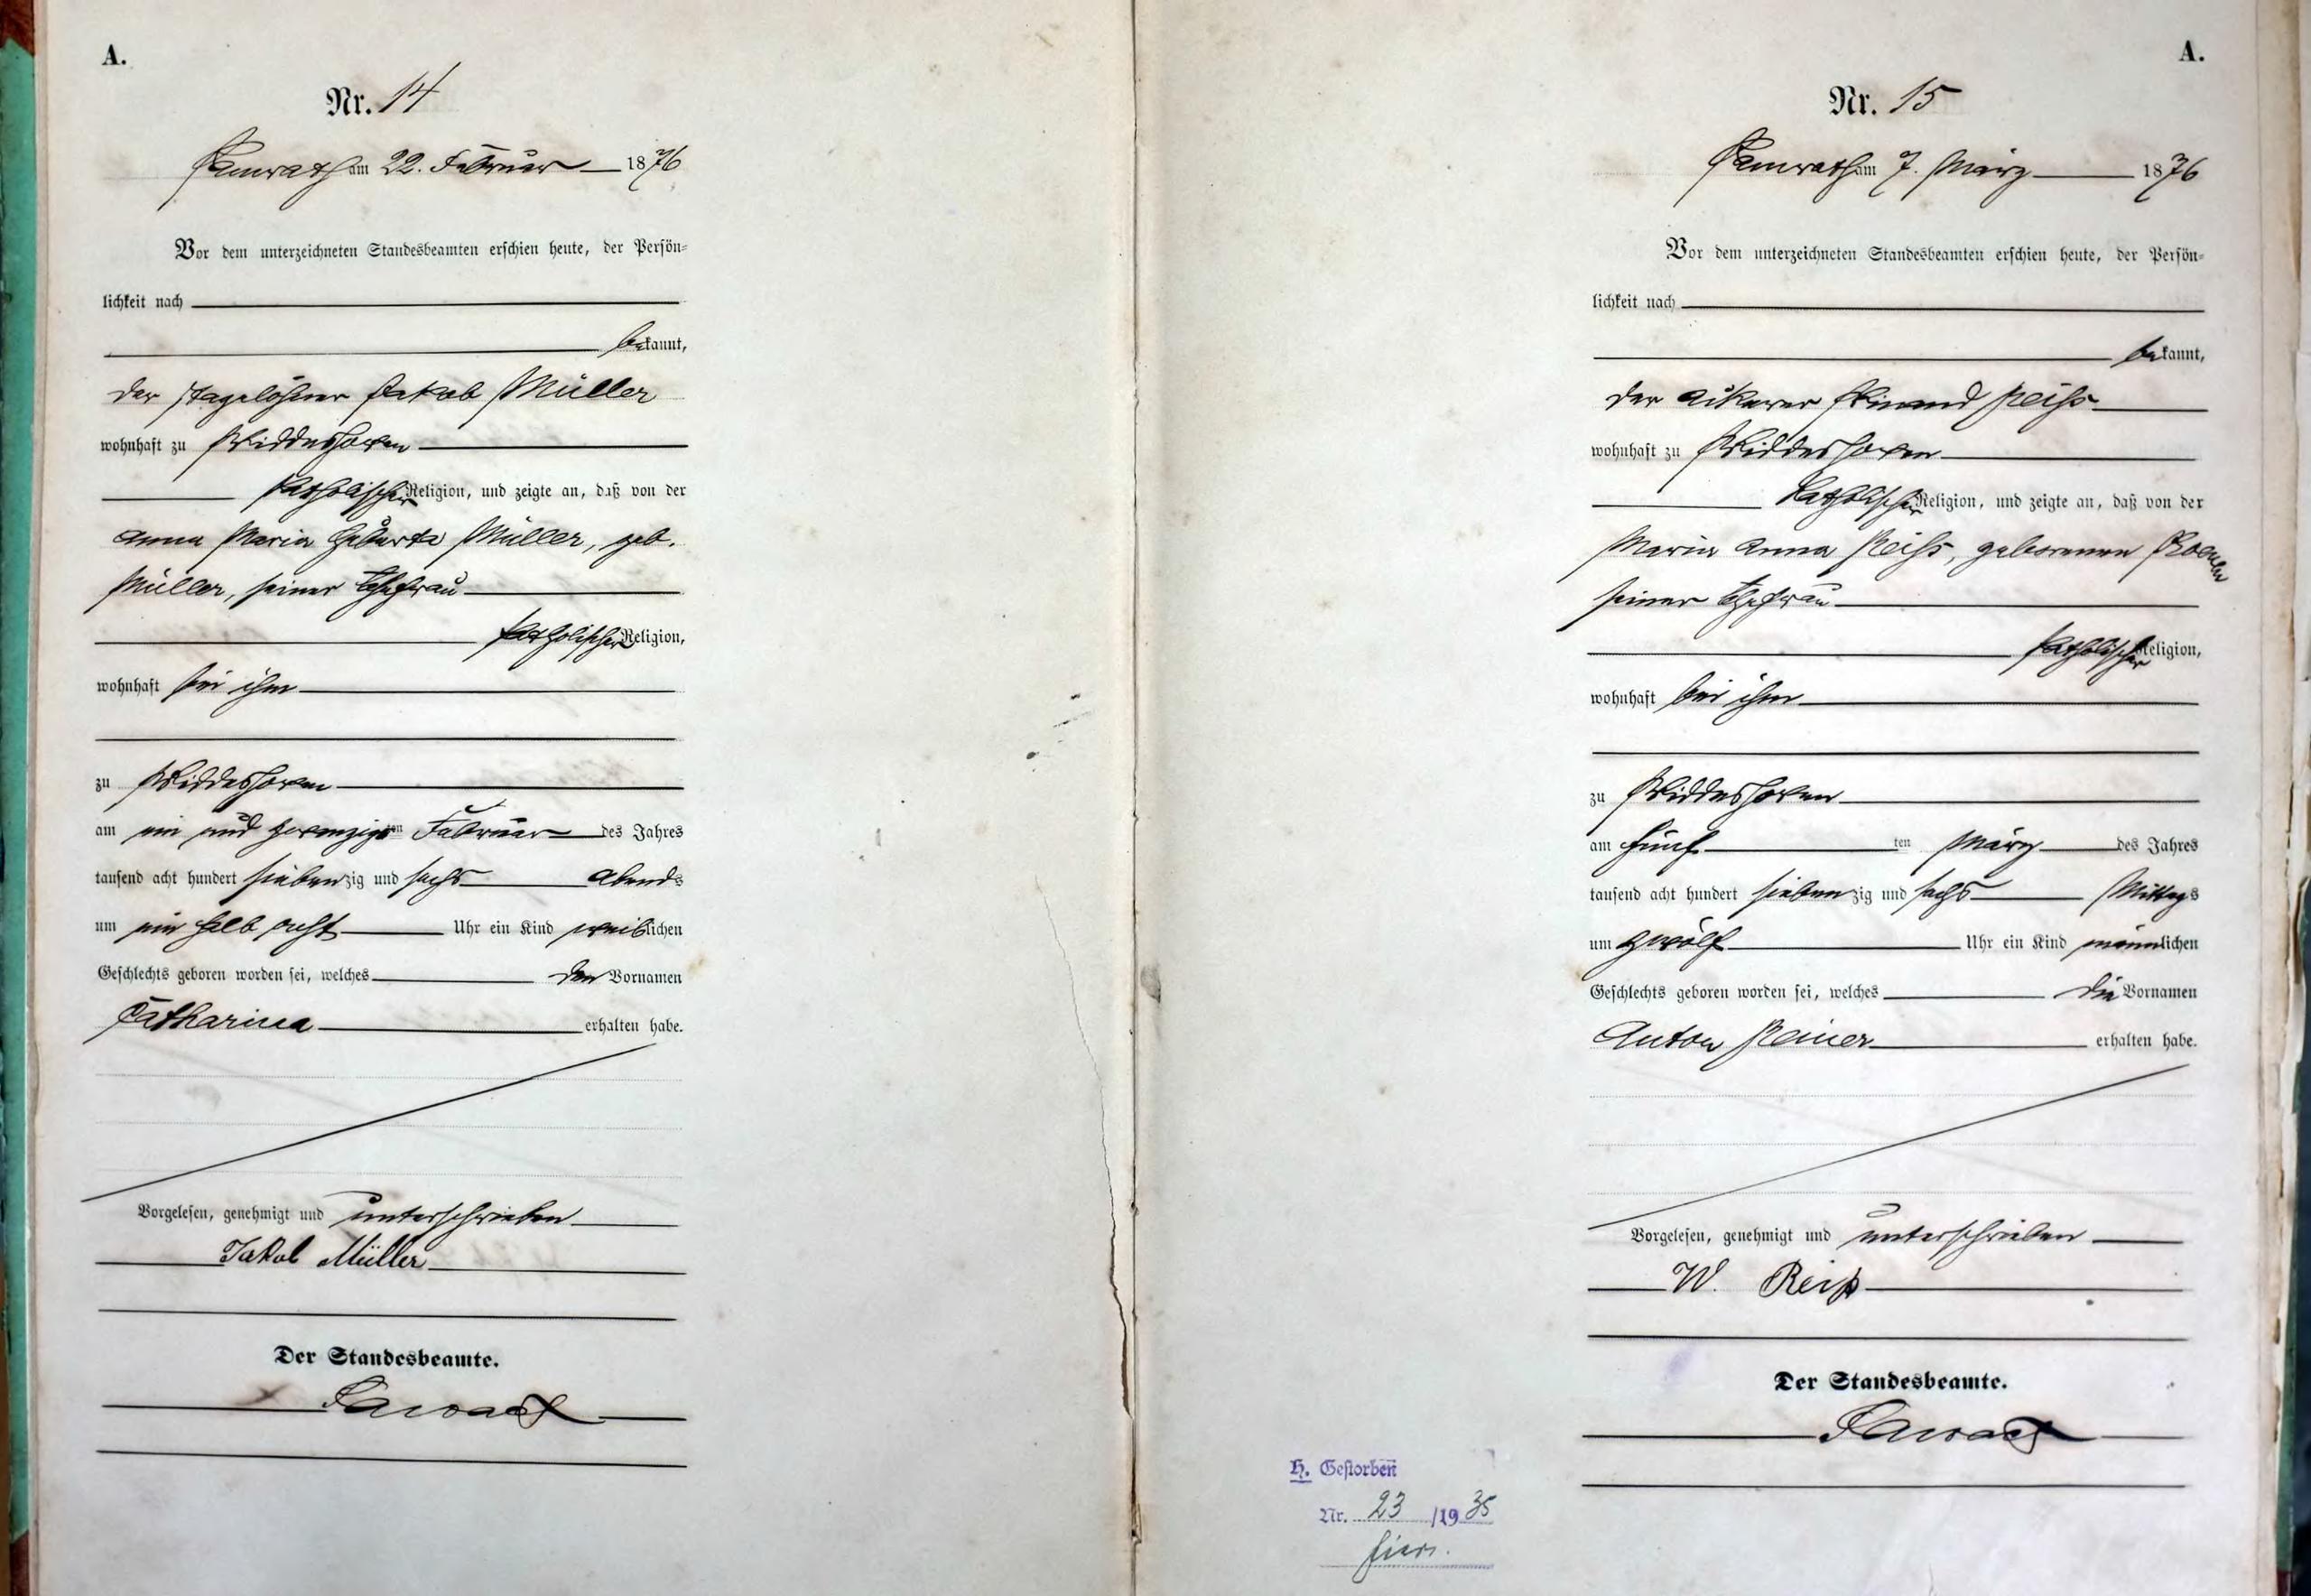 A.
Nr. 14
am 22. Februar 1876
Vor dem unterzeichneten Standesbeamten erschien heute, der Persön-
lichkeit nach
bekannt,
der Tagelöhner Jakob Müller
wohnhaft zu Widdeshoven
katholischer Religion, und zeigte an, daß von der
Anna Maria Huberta Müller, geb.
Müller, seiner Ehefrau
katholischer Religion,
wohnhaft bei ihm
zu Widdeshoven
am ein und zwanzigsten Februar des Jahres
tausend acht hundert siebenzig und sechs Abends
um ein halb acht Uhr ein Kind weiblichen
Geschlechts geboren worden sei, welches den Vornamen
Catharina erhalten habe.
Vorgelesen, genehmigt und unterschrieben
Jakob Müller
Der Standesbeamte.
A.
Nr. 15
am 7. März 1876
Vor dem unterzeichneten Standesbeamten erschien heute, der Persön-
lichkeit nach
bekannt,
der Ackerer Winand Reiß
wohnhaft zu Widdeshoven
katholischer Religion, und zeigte an, daß von der
Maria Anna Reiß, geborenen
seiner Ehefrau
katholischer Religion,
wohnhaft bei ihm
zu Widdeshoven
am fünften März des Jahres
tausend acht hundert siebenzig und sechs Mittags
um zwölf Uhr ein Kind männlichen
Geschlechts geboren worden sei, welches die Vornamen
Anton Reiner erhalten habe.
Vorgelesen, genehmigt und unterschrieben
W. Reiß
Der Standesbeamte.
H. Gestorben
Nr. 23 /1935
hier.